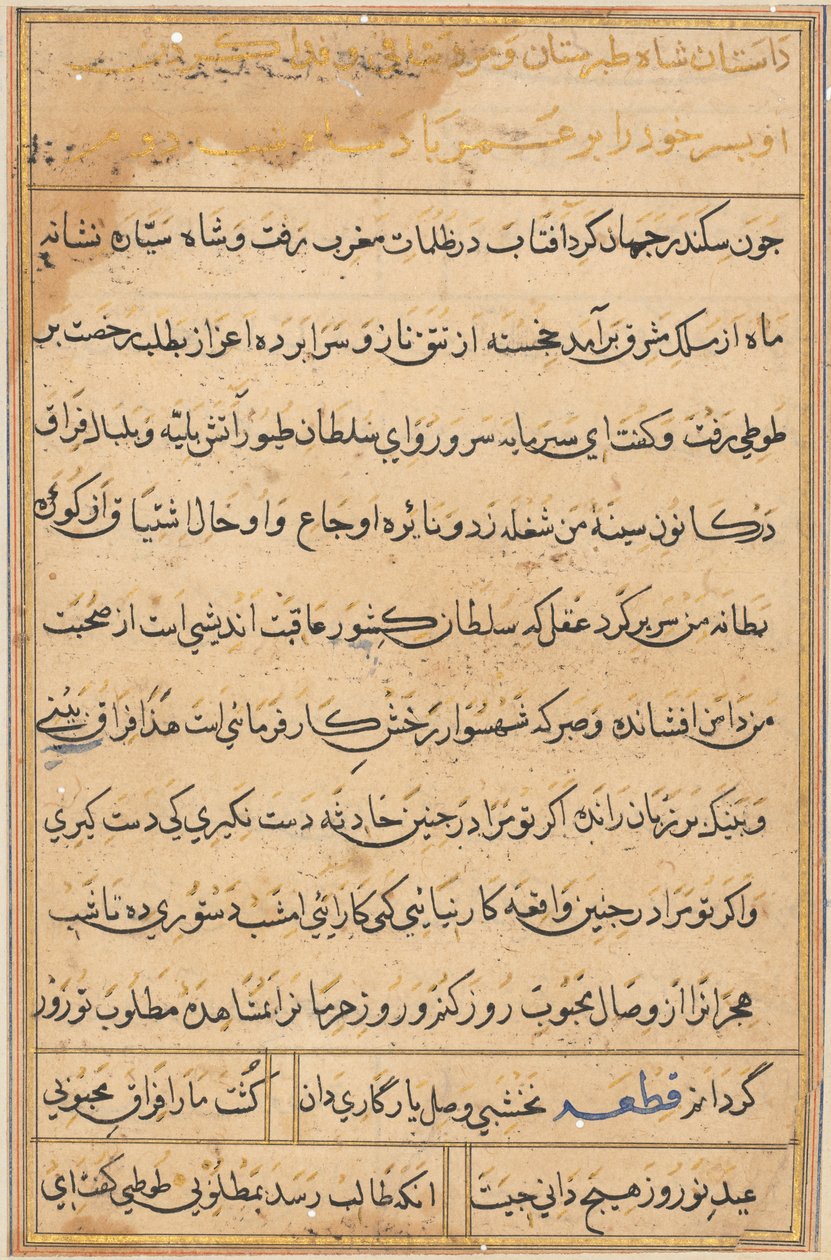 داستان شاه طبرستان و مرد
او پسر خود را بر عمر پادشاه شب دوم
چون سکندر جهان گرد آفتاب در ظلمات مغرب رفت و شاه سیّاره نشانه
ماه از ملک مشرق برآمد خجسته از تتق ناز و سرابرده اعزاز بطلب رخصت بر
طوطی رفت و کفت ای سرمایه سرور و ای سلطان طیور آتش بلیّه و بلبال فراق
در کانون سینهٔ من شعله زد و نائره اوجاع و اوحال اشتیاق از کوره
بطانه من سر بر کرد عقل که سلطان کشور عاقبت اندیشی است از صحبت
من دامن افشانده و صبر که شهسوار رخش کار فرمائی است هذا فراق بینی
و بینک بر زبان رانده اکر تو مرا در چنین حادثه دست نکیری کی دست کیری
و اکر تو مرا در چنین واقعه کار نیائی کی کار آئی امشب دستوری ده تا شب
هجرانرا از وصال محبوب روز کنم و روز حرمانرا بمشاهده مطلوب نوروز
گردانم قطعه نخشبی وصل یار کاری دان کشت ما را فراق محبوبی
عید نوروز هیچ دانی چیست انکه طالب رسد بمطلوبی طوطی کفت ای